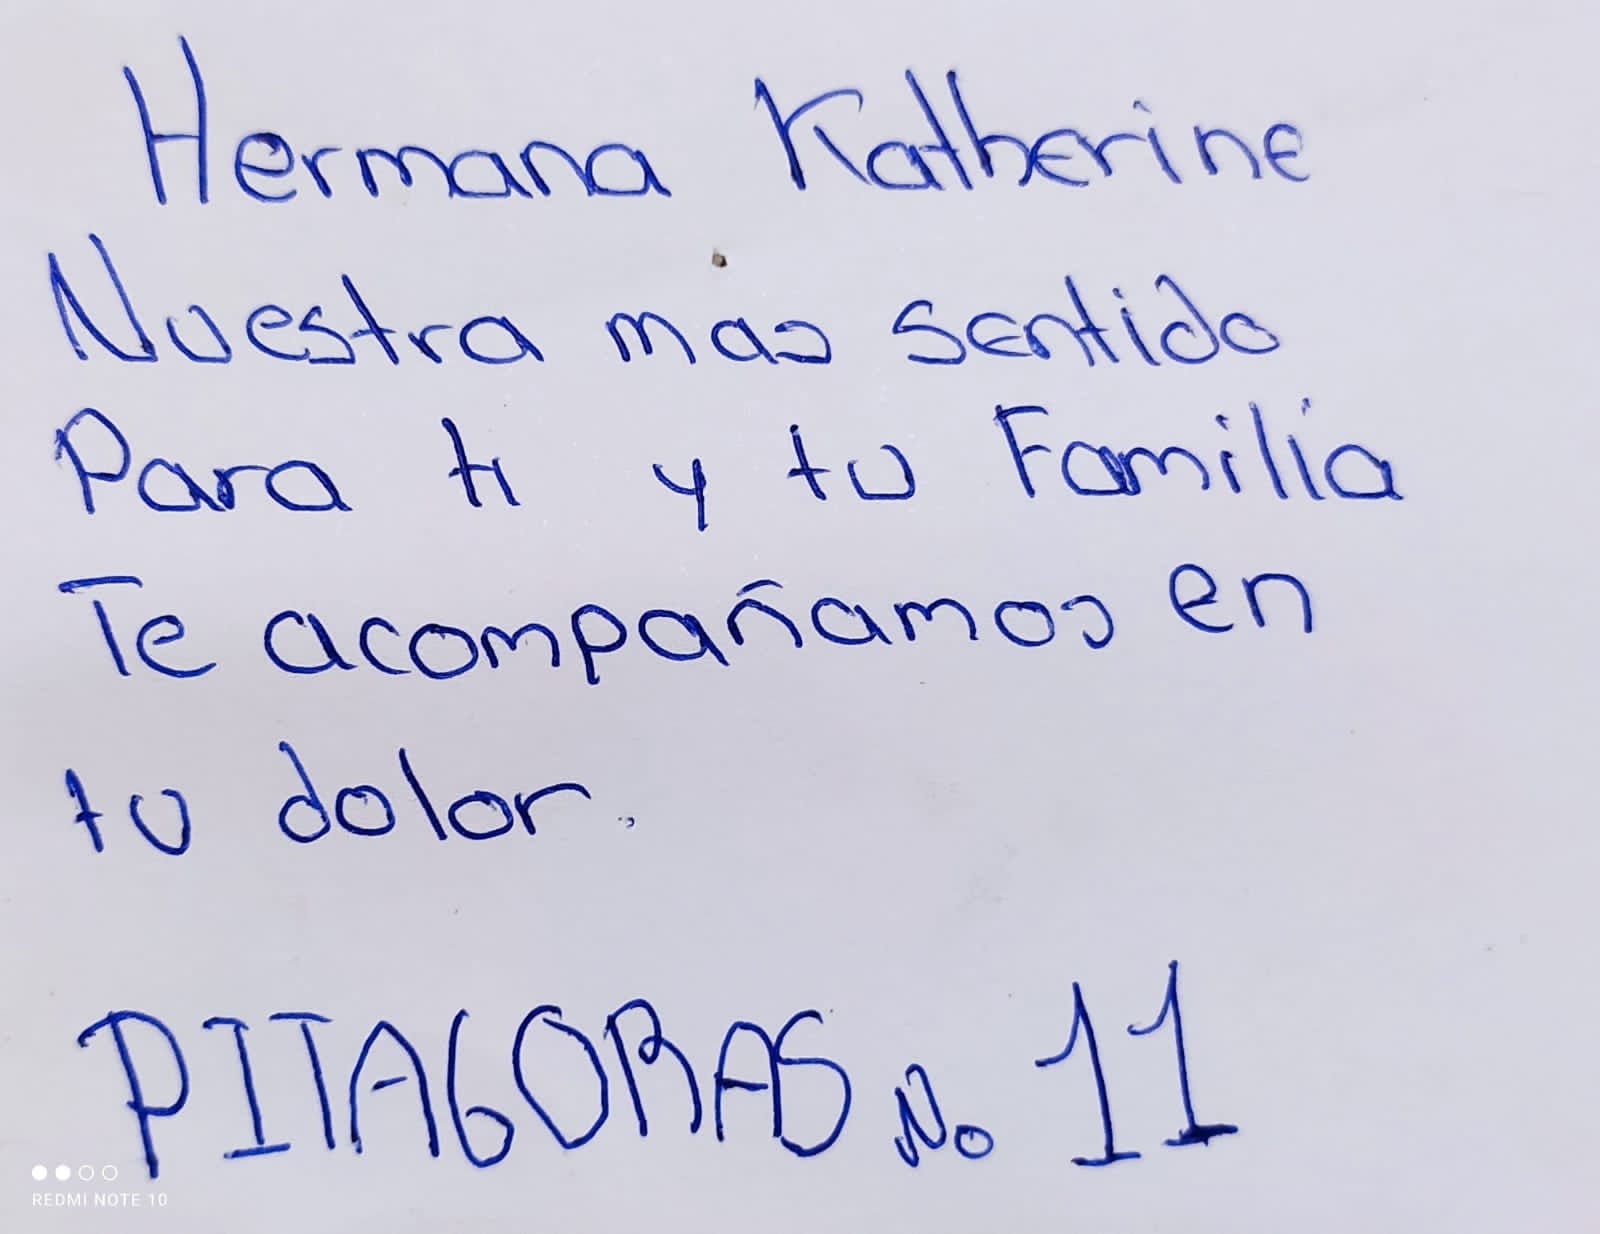 Hermana Katherine
Nuestra mas sentido
Para ti y tu Familia
Te acompañamos en
tu dolor.
PITAGORAS No 11
REDMI NOTE 10